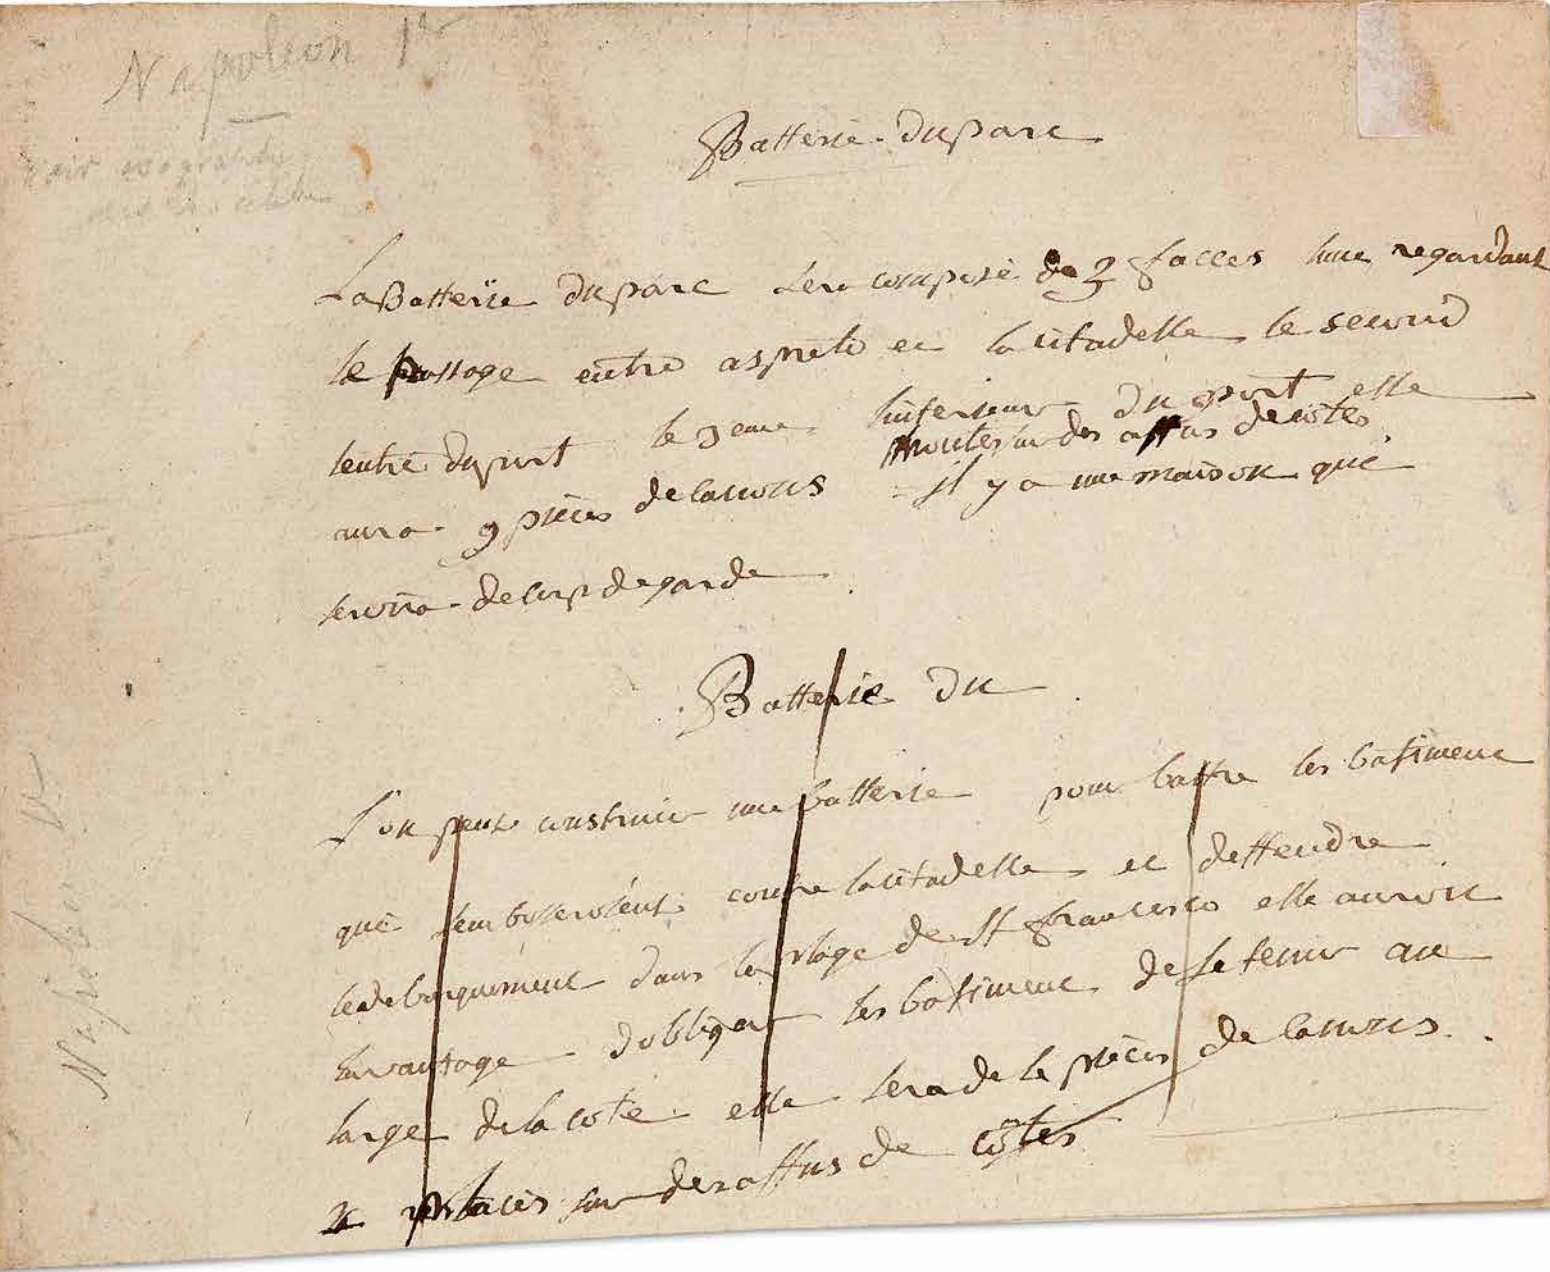 Napoleon 1er
voir
Batterie du parc
La Batterie du parc sera composé de 3 facces l'une regardant
le passage entre aspreto et la citadelle le second
lentre du port le 3eme linferieur du port elle
montes sur des affus de côtes
aura 9 pièces de canons = il y a une maison que
servira de corp de garde
Batterie du
L'on peut construir une batterie pour battre les batiment
que semboseroient contre la citadelle et deffendre
le debarquement dans la plage de St francesco elle auroit
lavantage dobliger les batiment de se tenir au
large de la cote elle sera de pièces de canons
placès sur des affus de côtes
Napoleon 1er